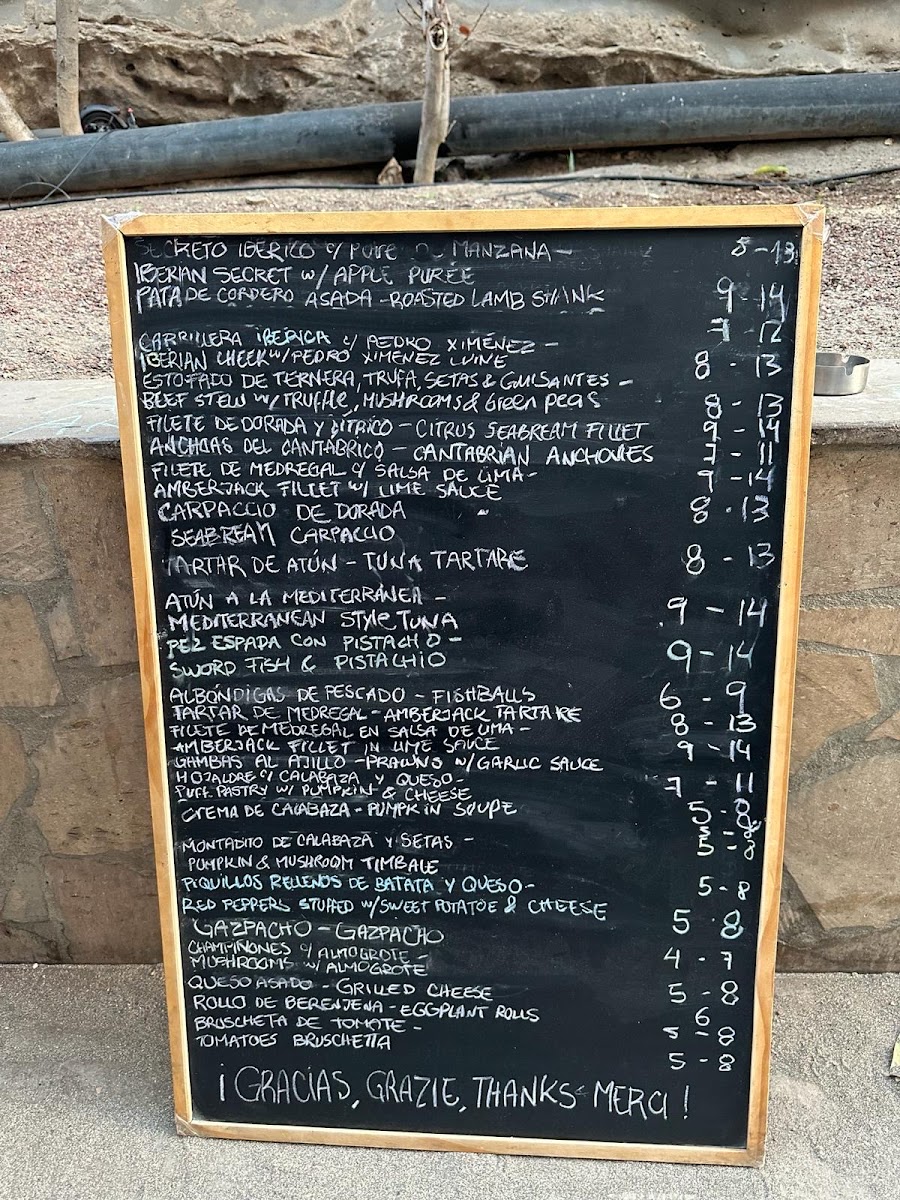 SECRETO IBERICO c/ PURE DE MANZANA - 8 - 13
IBERIAN SECRET w/ APPLE PURÉE
PATA DE CORDERO ASADA - ROASTED LAMB SHANK 9 - 14
7 - 12
CARRILLERA IBERICA c/ PEDRO XIMÉNEZ -
IBERIAN CHEEK w/ PEDRO XIMENEZ WINE 8 - 13
ESTOFADO DE TERNERA, TRUFA, SETAS & GUISANTES -
BEEF STEW w/ TRUFFLE, MUSHROOMS & Green peas 8 - 13
FILETE DE DORADA Y CITRICO - CITRUS SEABREAM FILLET 9 - 14
ANCHOAS DEL CANTABRICO - CANTABRIAN ANCHOVIES 7 - 11
FILETE DE MEDREGAL c/ SALSA DE LIMA - 9 - 14
AMBERJACK FILLET w/ LIME SAUCE
CARPACCIO DE DORADA 8 - 13
SEABREAM CARPACCIO
TARTAR DE ATÚN - TUNA TARTARE 8 - 13
ATÚN A LA MEDITERRÁNEA -
MEDITERRANEAN STYLE TUNA 9 - 14
PEZ ESPADA CON PISTACHO -
SWORD FISH & PISTACHIO 9 - 14
ALBONDIGAS DE PESCADO - FISHBALLS 6 - 9
TARTAR DE MEDREGAL - AMBERJACK TARTARE 8 - 13
FILETE DE MEDREGAL EN SALSA DE LIMA -
AMBERJACK FILLET IN LIME SAUCE 9 - 14
GAMBAS AL AJILLO - PRAWNS w/ GARLIC SAUCE
HOJALDRE c/ CALABAZA Y QUESO - 7 - 11
PUFF PASTRY w/ PUMPKIN & CHEESE
CREMA DE CALABAZA - PUMPKIN SOUPE 5 - 8
MONTADITO DE CALABAZA Y SETAS - 5 - 8
PUMPKIN & MUSHROOM TIMBALE
PIQUILLOS RELLENOS DE BATATA Y QUESO - 5 - 8
RED PEPPERS STUFFED w/ SWEET POTATOE & CHEESE
GAZPACHO - GAZPACHO 5 - 8
CHAMPIÑONES c/ ALMOGROTE -
MUSHROOMS w/ ALMOGROTE 4 - 7
QUESO ASADO - GRILLED CHEESE 5 - 8
ROLLO DE BERENJENA - EGGPLANT ROLLS 6
BRUSCHETA DE TOMATE - 5 - 8
TOMATOES BRUSCHETTA 5 - 8
¡GRACIAS, GRAZIE, THANKS MERCI!